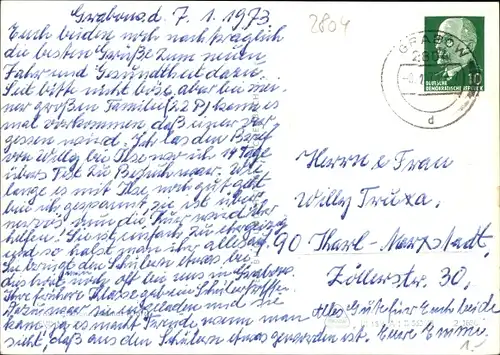 Grabow, d. 7. 1. 1973.
Euch beiden noch nachträglich
die besten Grüße zum neuen
Jahr und Gesundheit dazu.
Seid bitte nicht böse, aber bei mei-
ner großen Familie (22 P) kann es
mal vorkommen daß einer ver-
gessen wird. Ich las den Brief
von Willy bei Ilse war ich 14 Tage
übers Fest zu Besuch war. Wie
lange es mit Ilse noch gut geht
bin ich gespannt sie ist über
nervös, nun die Kur wird ihr
helfen. Sie ist einfach zu ehrgeizig
und so
Sie bringt den Schülern etwas bei,
das hört noch oft bei uns in Grabow.
Ihre frühere Klasse gab ein Schülertreffen.
Dazu war sie eingeladen und sie
kam, ja es macht Freude, wenn man
sieht, daß aus den Schülern etwas geworden ist.
Alles Gute für Euch beide
Eure
2804
GRABOW
2804
d
DEUTSCHE
DEMOKRATISCHE REPUBLIK
10
Herrn u Frau
Willy Truxa.
90 Karl-Marxstadt,
Zöllerstr. 30,
1.-